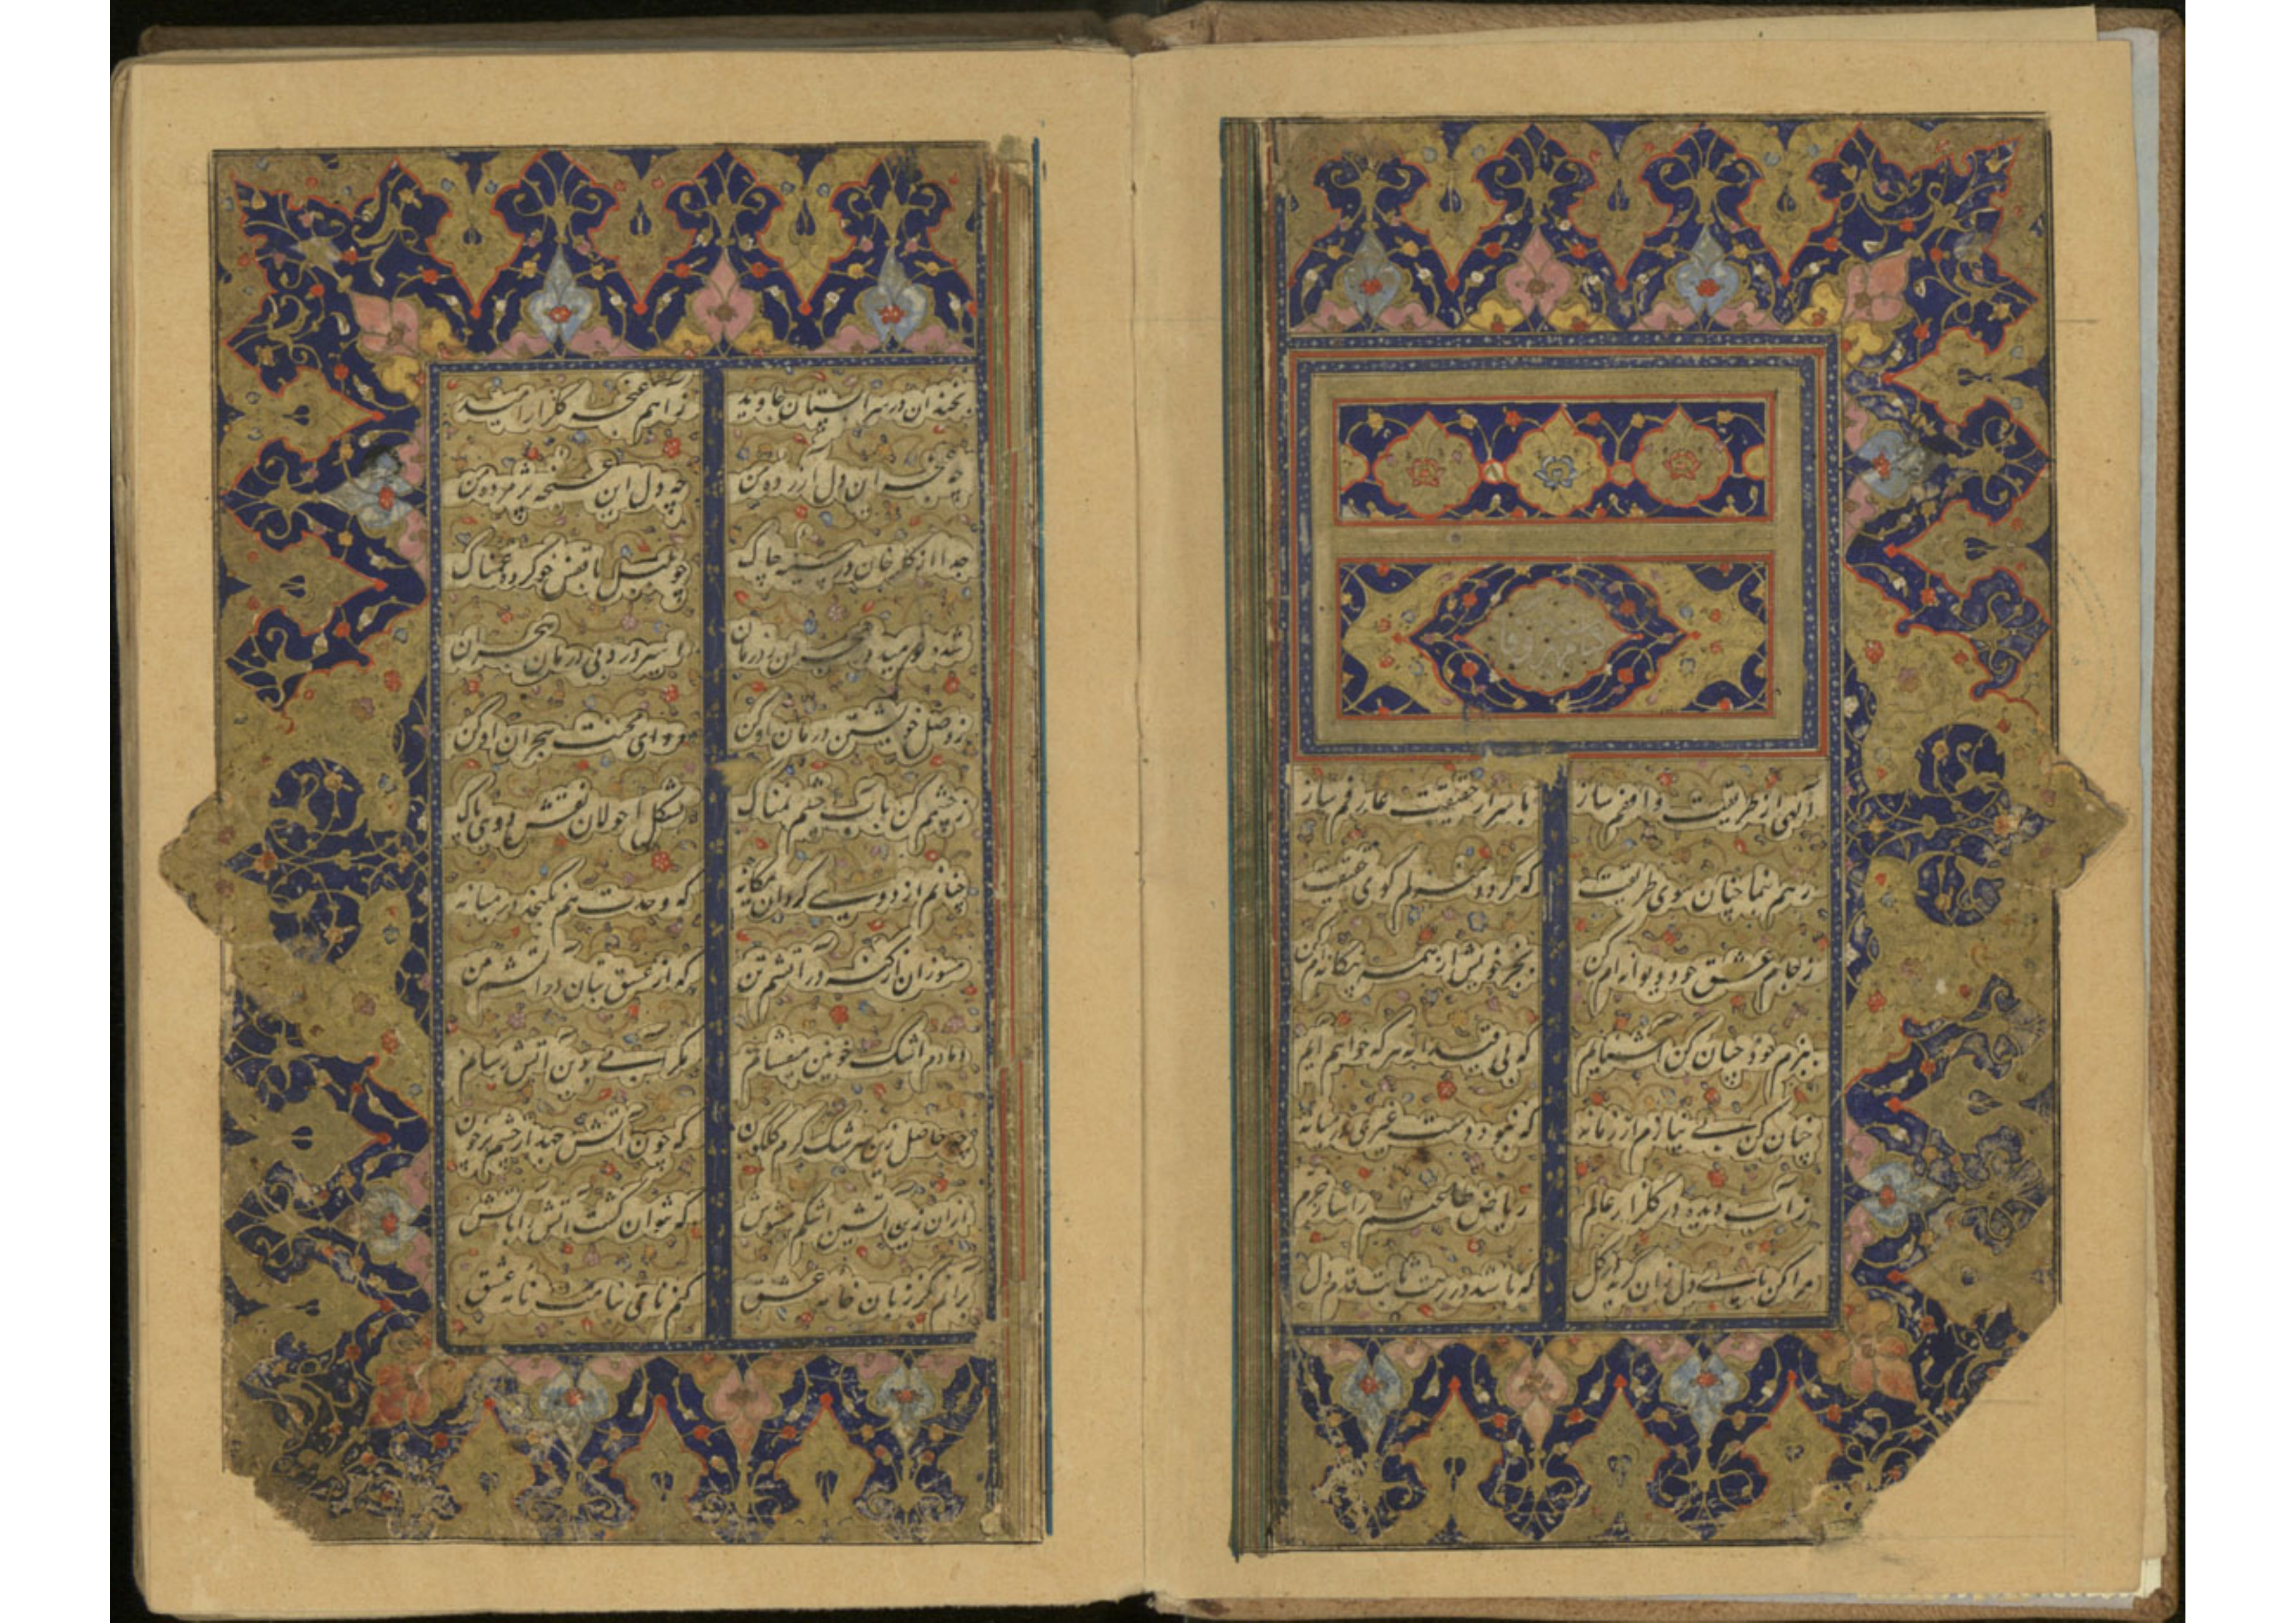 الهی از طریقت واقفم ساز باسرار حقیقت عارفم ساز
رهم بنما چنان سوی طریقت که گردد منزلم کوی حقیقت
ز جام عشق خود دیوانه ام کن بجز خویش از همه بیگانه ام کن
ببزم خود چنان کن آشنایم که بی هر که خواهم آیم
چنان کن بی نیازم از زمانه که نبود دوست غیری در میانه
ز آب دیده در گلزار عالم ریاض طالعم را ساز خرم
مرا کن پای دل زان گریه در گل که باشد در رهت ثابت قدم دل
بخندان در سرابستان جاوید ز آهم غنچه گلزار امید
چه غنچه این دل آزرده من چه دل این غنچه پژمرده من
جدا از گلرخان در سینه چاک چو بلبل با قفس خو کرده غمناک
شده نومید در هجران ز درمان اسیر درد بی درمان هجران
ز وصل خویشتن درمان او کن دوای محنت هجران او کن
ز چشمم کن بآب چشم نمناک بشکل احولان نقش دویی پاک
چنانم از دویی گردان یگانه که وحدت هم نگنجد در میانه
مسوزان از گنه در آتشم تن که از عشق بتان در آتشم من
دمادم اشک خونین میفشانم مگر آبی بدین آتش رسانم
چه حاصل زین سرشک گرم گلگون که چون آتش جهد از چشم پرخون
ازان زین آتشین اشکم مشوش که نتوان کشت آتش را بآتش
برآنم کز زبان خامه عشق کنم نامی بنامت نامه عشق